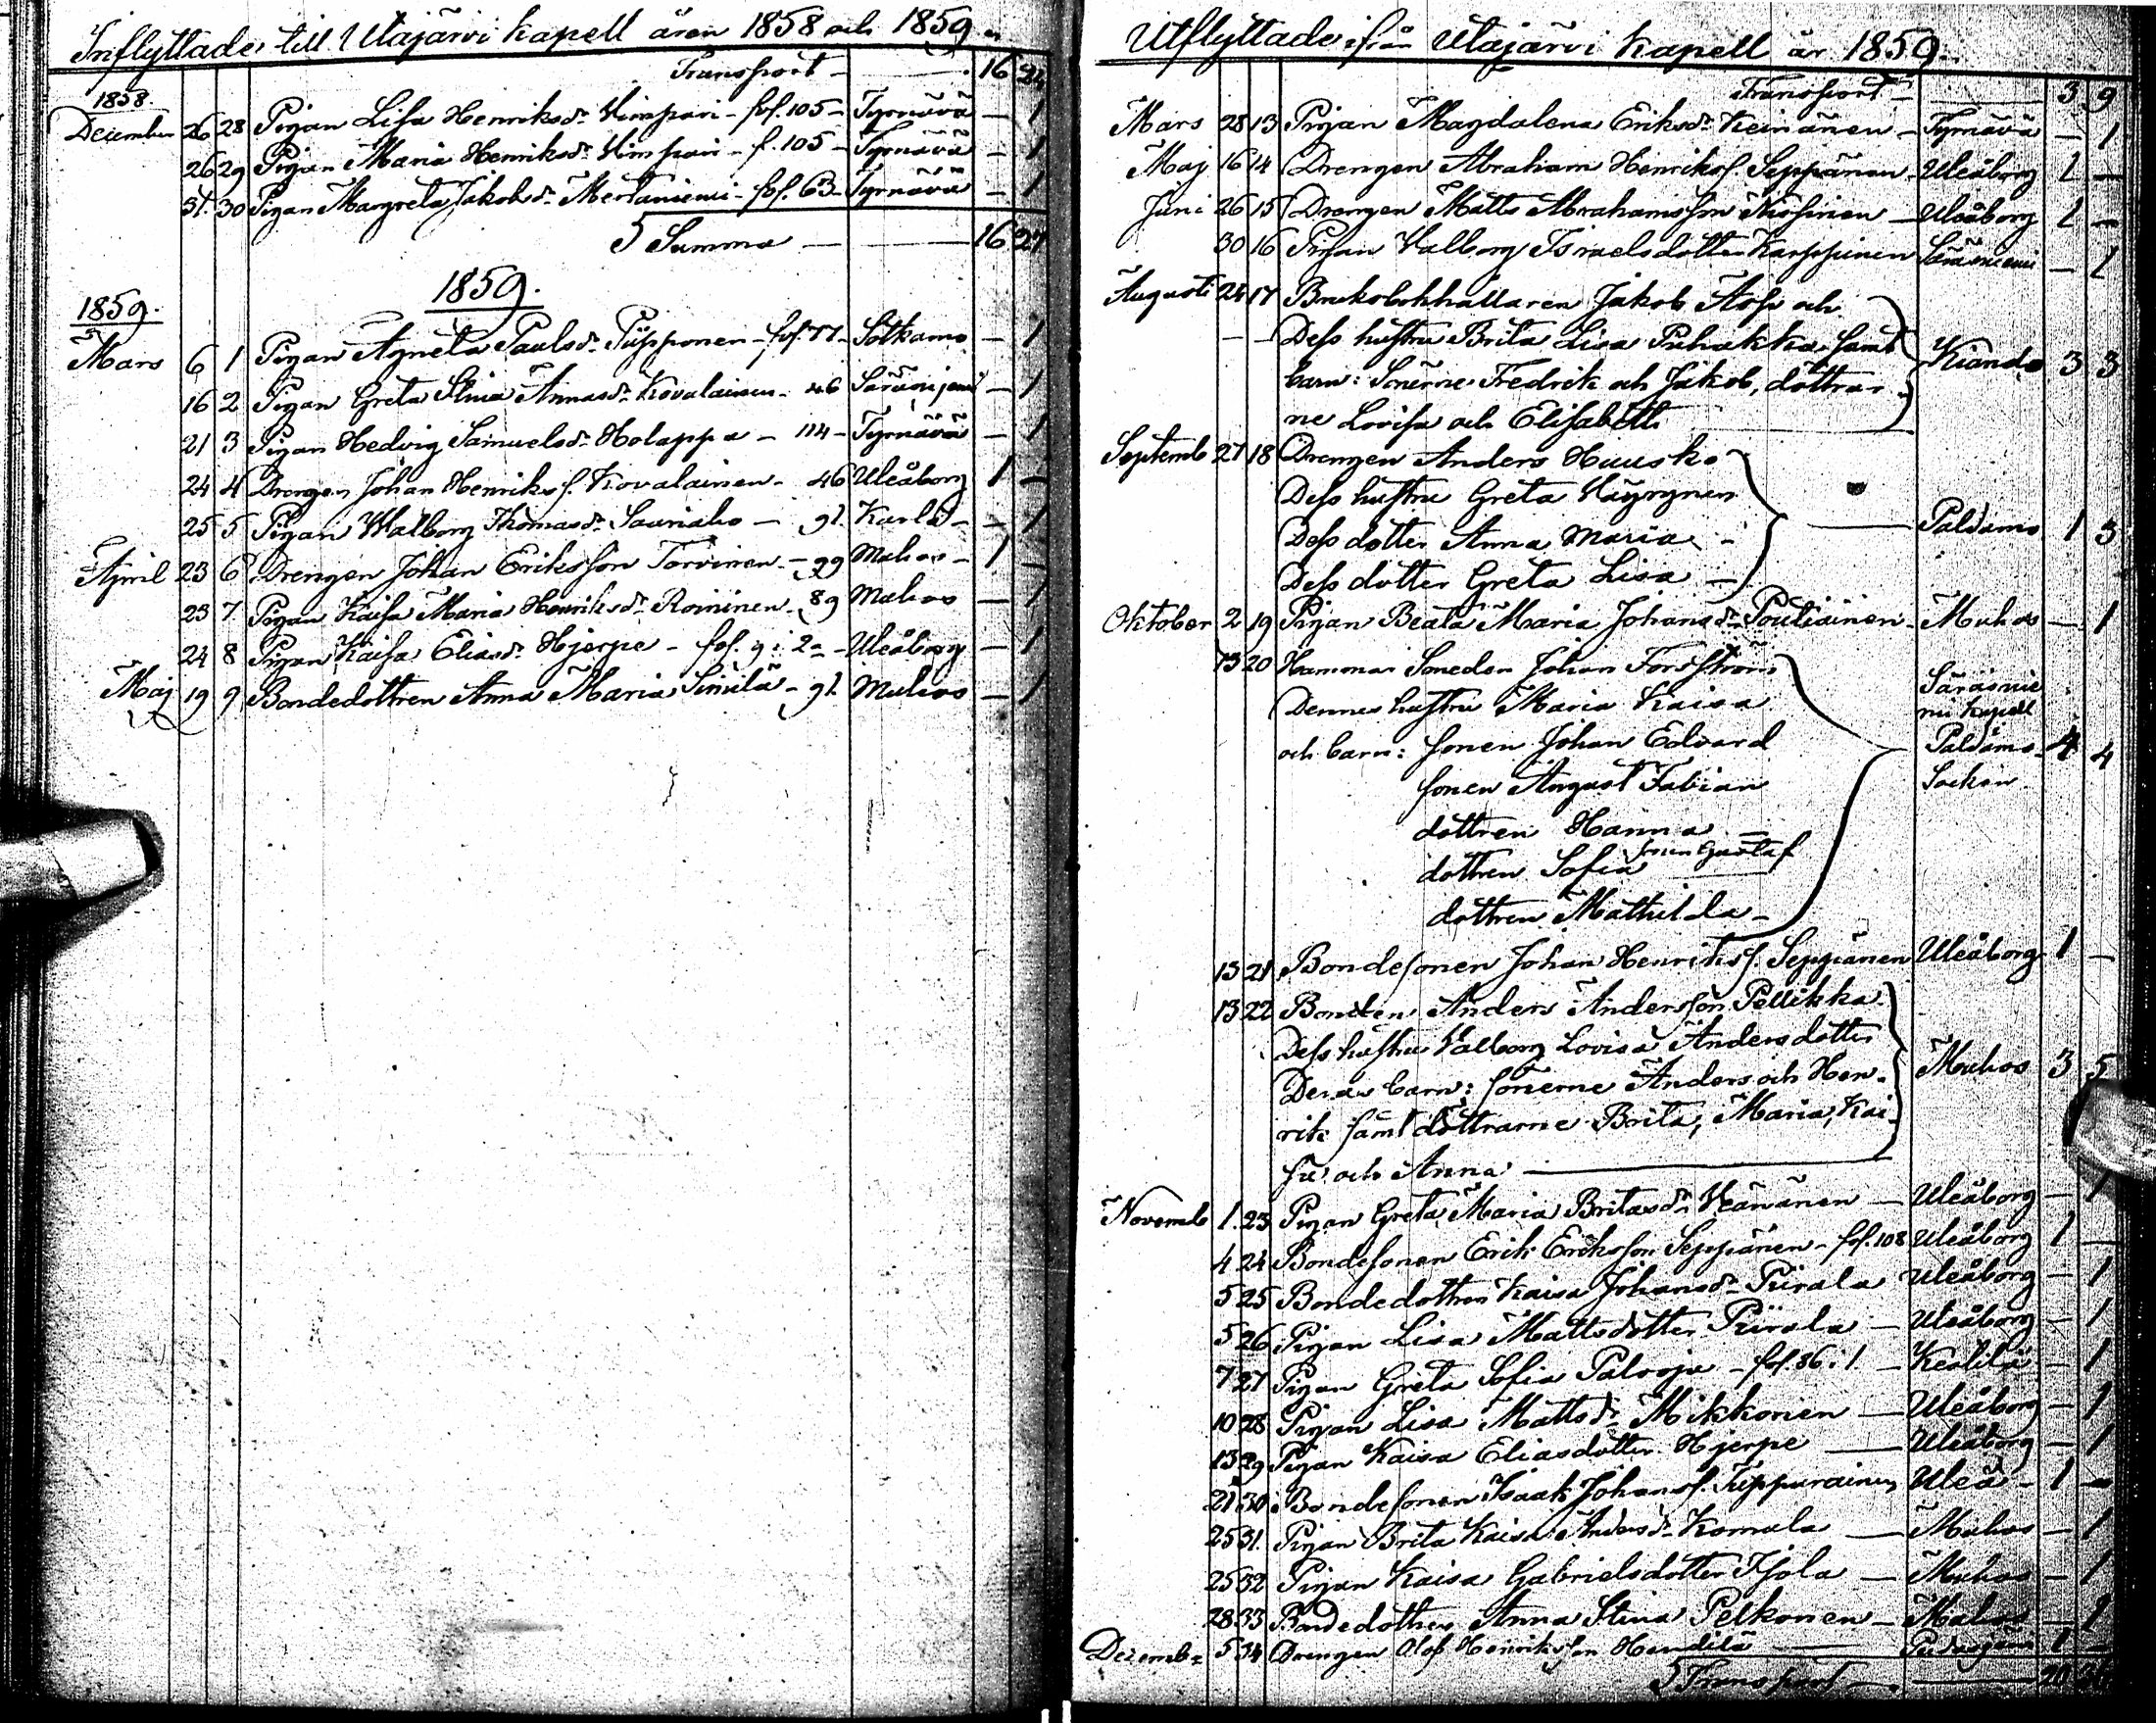 Inflyttade till Utajärvi kapell åren 1858 och 1859
Transport - 16 24
1858.
December 26 28 Pigan Lisa Henriksdr Kimpari - fol. 105 - Tyrnävä - 1
26 29 Pigan Maria Henriksdr Kimpari - f. 105 - Tyrnävä - 1
31. 30 Pigan Margreta Jakobsdr Mertaniemi - fol. 63 - Tyrnävä - 1
Summa - 16 27
1859.
1859.
Mars 6 1 Pigan Agneta Paulsdr Piipponen - fol. 77 - Sotkamo - 1
16 2 Pigan Greta Stina Annasdr Kovalainen - 46 Säräisniemi - 1
21 3 Pigan Hedvig Samuelsdr Holappa - 114 - Tyrnävä - 1
24 4 Drengen Johan Henriks s. Kovalainen - 46 Uleåborg 1 -
25 5 Pigan Walborg Thomasdr Sauriaho - 91. Karlö - - 1
April 23 6 Drengen Johan Eriksson Torvinen - 99 Muhos - 1 -
23 7 Pigan Kaisa Maria Henriksdr Roininen - 89 Muhos - 1
24 8 Pigan Kaisa Eliasdr Hjerpe - fol. 9 i 2a - Uleåborg - 1
Maj 19 9 Bondedottren Anna Maria Similä - 91. Muhos - 1
Utflyttade ifrån Utajärvi Kapell år 1859.
Transport - 3 9
Mars 28 13 Pigan Magdalena Eriksdr Keinänen - Tyrnävä - 1
Maj 16 14 Drengen Abraham Henriks s. Seppänen - Uleåborg 1 -
Juni 26 15 Drengen Matts Abrahamsson Nissinen - Uleåborg 1 -
30 16 Pigan Valborg Israelsdotter Karppinen Säräisniemi - 1
Augusti 24 17 Bruksbokhållaren Jakob Asp och
- - Dess hustru Brita Lisa Puhakka samt
barn: Sönerne Fredrik och Jakob, döttrar- Kiando 3 3
ne Lovisa och Elisabeth
Septemb 27 18 Drengen Anders Huusko
Dess hustru Greta Häyrynen
Dess dotter Anna Maria - Paldamo 1 3
Dess dotter Greta Lisa -
Oktober 2 19 Pigan Beata Maria Johansdr Pouliainen - Muhos - 1
13 20 Hammar Smeden Johan Forsström Säräisnie
Dennes hustru Maria Kaisa mi Kapell
och barn: sonen Johan Edvard Paldamo 4 4
sonen August Fabian Socken
dottren Hanna -
sonen Gustaf
dottren Sofia
dottren Mathilda -
13 21 Bondesonen Johan Henriks s. Seppänen Uleåborg 1 -
13 22 Bonden Anders Andersson Pellikka
Dess hustru Valborg Lovisa Andersdotter
Deras barn: sönerne Anders och Hen- Muhos 3 5
rik samt döttrarne Brita, Maria, Kai-
sa och Anna
Novemb 1. 23 Pigan Greta Maria Britasdr Keänänen - Uleåborg - 1
4 24 Bondesonen Erik Eriksson Seppänen - fol. 108 Uleåborg 1 -
5 25 Bondedottren Kaisa Johansdr Piirala Uleåborg - 1
5 26 Pigan Lisa Mattsdotter Piirala - Uleåborg - 1
7 27 Pigan Greta Sofia Palooja - fol. 86 i 1 - Kestilä - 1
10 28 Pigan Lisa Mattsdr Mikkonen - Uleåborg - 1
13 29 Pigan Kaisa Eliasdotter Hjerpe - Uleåborg - 1
21 30 Bondesonen Isaak Johans s. Tuppurainen Uleå - 1 -
25 31. Pigan Brita Kaisa Andersdr Komula - Muhos - 1
25 32 Pigan Kaisa Gabrielsdotter Isola - Muhos - 1
28 33 Bondedottren Anna Stina Pelkonen - Muhos - 1
Decemb 5 34 Drengen Olof Henriksson Hendilä Pudasjärvi 1 -
Transport -